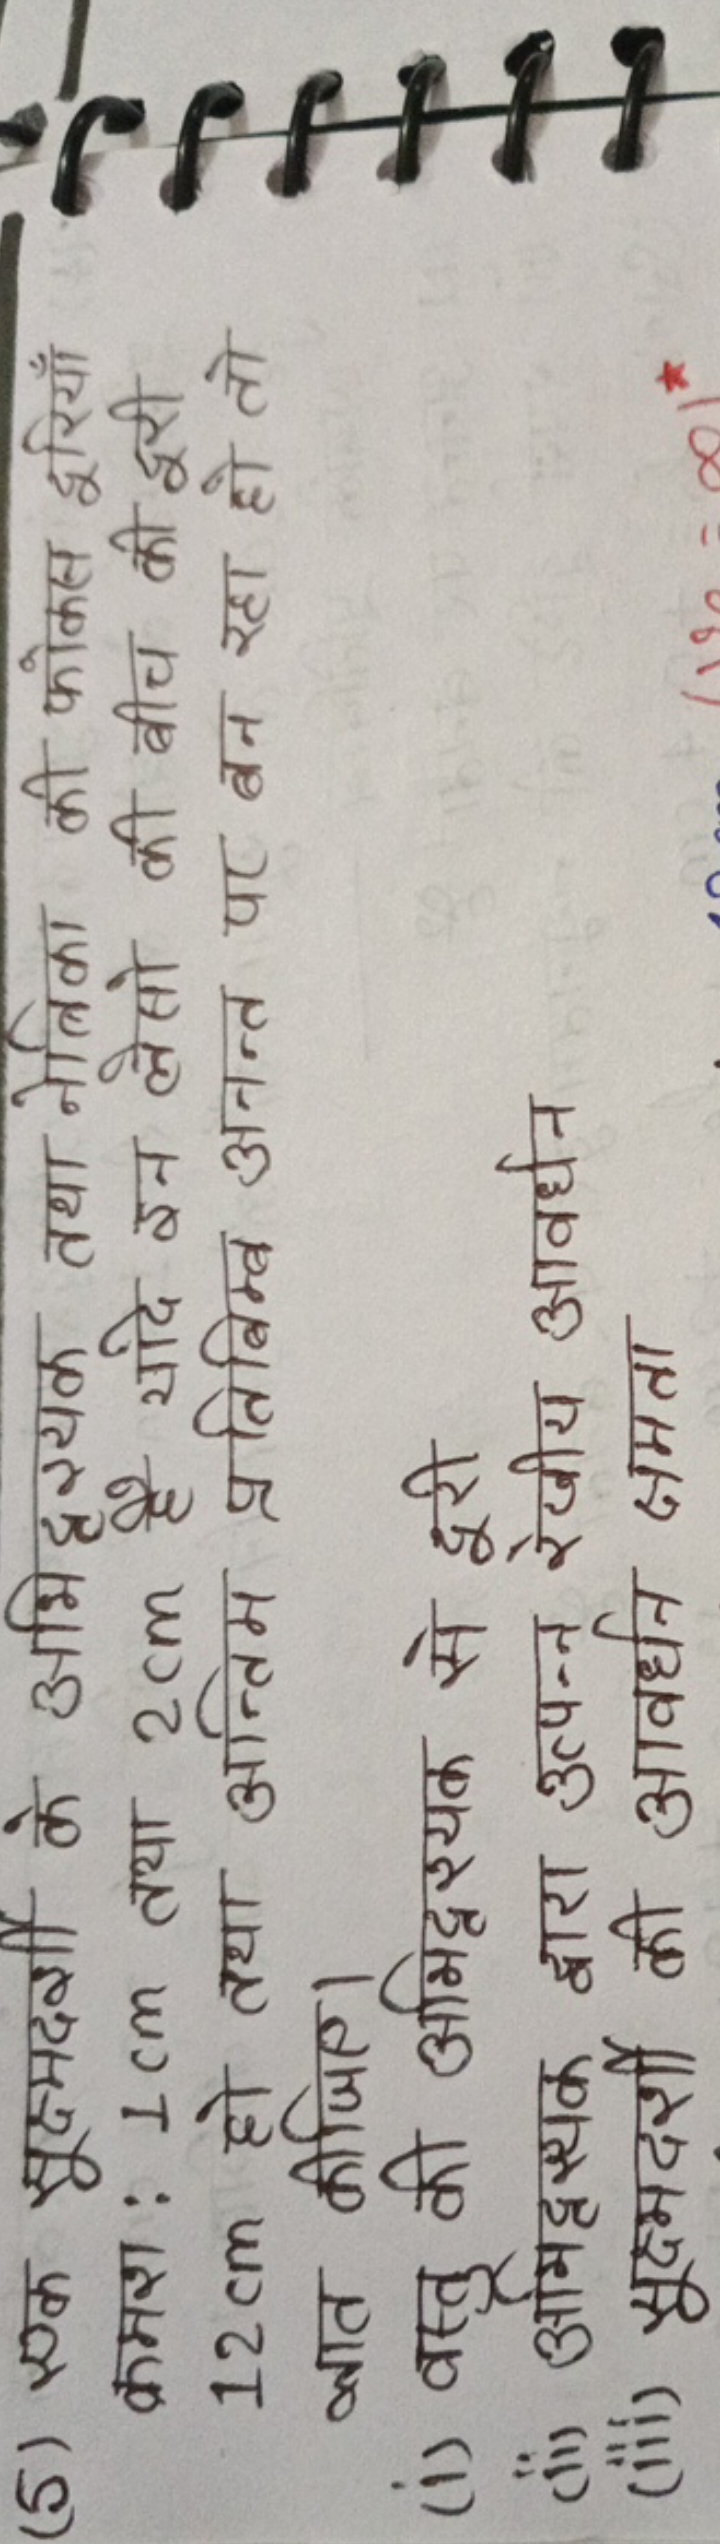 (5) एक सूक्ष्मदर्शी के अभिदृश्यक तथा नेत्रिका की फोकस दूरियाँ
क्रमश: 1cm तथा 2cm है यदि इन लेंसो की बीच की दूरी
12cm हो तथा अन्तिम प्रतिबिम्ब अनन्त पर बन रहा हो तो
ज्ञात कीजिए।
(i) वस्तु की अभिदृश्यक से दूरी
(ii) अभिदृश्यक द्वारा उत्पन्न रेखीय आवर्धन
(iii) सूक्ष्मदर्शी की आवर्धन क्षमता